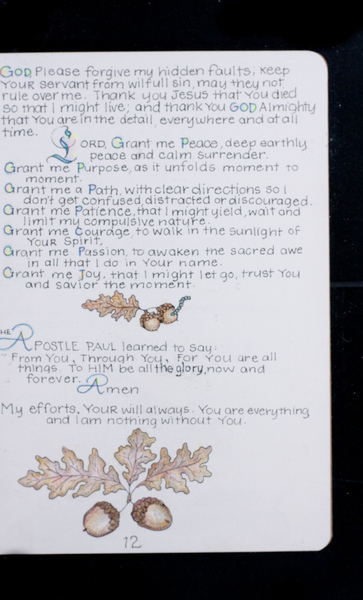 GOD, Please forgive my hidden faults; keep
Your servant from wilfull sin, may they not
rule over me. Thank you Jesus that You died
so that I might live; and thank You GOD Almighty
that You are in the detail, everywhere and at all
time.
LORD, Grant me Peace, deep earthly
peace and calm surrender.
Grant me Purpose, as it unfolds moment to
moment.
Grant me a Path, with clear directions so I
don't get confused, distracted or discouraged.
Grant me Patience, that I might yield, wait and
limit my compulsive nature.
Grant me Courage, to walk in the sunlight of
Your Spirit,
Grant me Passion, to awaken the sacred awe
in all that I do in Your name.
Grant me Joy, that I might let go, trust You
and savior the moment.
THE APOSTLE PAUL learned to say:
"From You, Through You, For You are all
things. To HIM be all the glory, now and
forever. Amen
My efforts, YOUR will always. You are everything
and I am nothing without You.
12